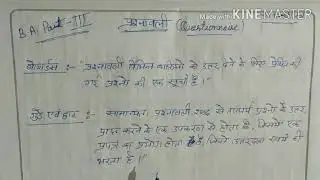 Made with KINEMASTER
B.A. Part-III
प्रश्नावली
(Questionnaire)
बोगार्डस :- "प्रश्नावली विभिन्न व्यक्तियों को उत्तर देने के लिए प्रेषित की
गई प्रश्नों की एक सूची है।"
गुडे एवं हाट :- सामान्यतः प्रश्नावली शब्द से तात्पर्य प्रश्नों के उत्तर
प्राप्त करने के एक उपकरण से होता है, जिसमें एक
प्रपत्र का प्रयोग होता है, जिसे उत्तरदाता स्वयं ही
भरता है।"